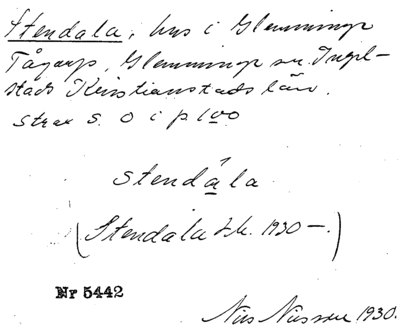 Stendala, hus i Glemminge
Tågarp, Glemminge sn. Ingel-
stads Kristianstads län.
strax s. o i p 100
stendála
(Stendala j.k. 1930 -.)
Nr 5442
Nils Nilsson 1930.